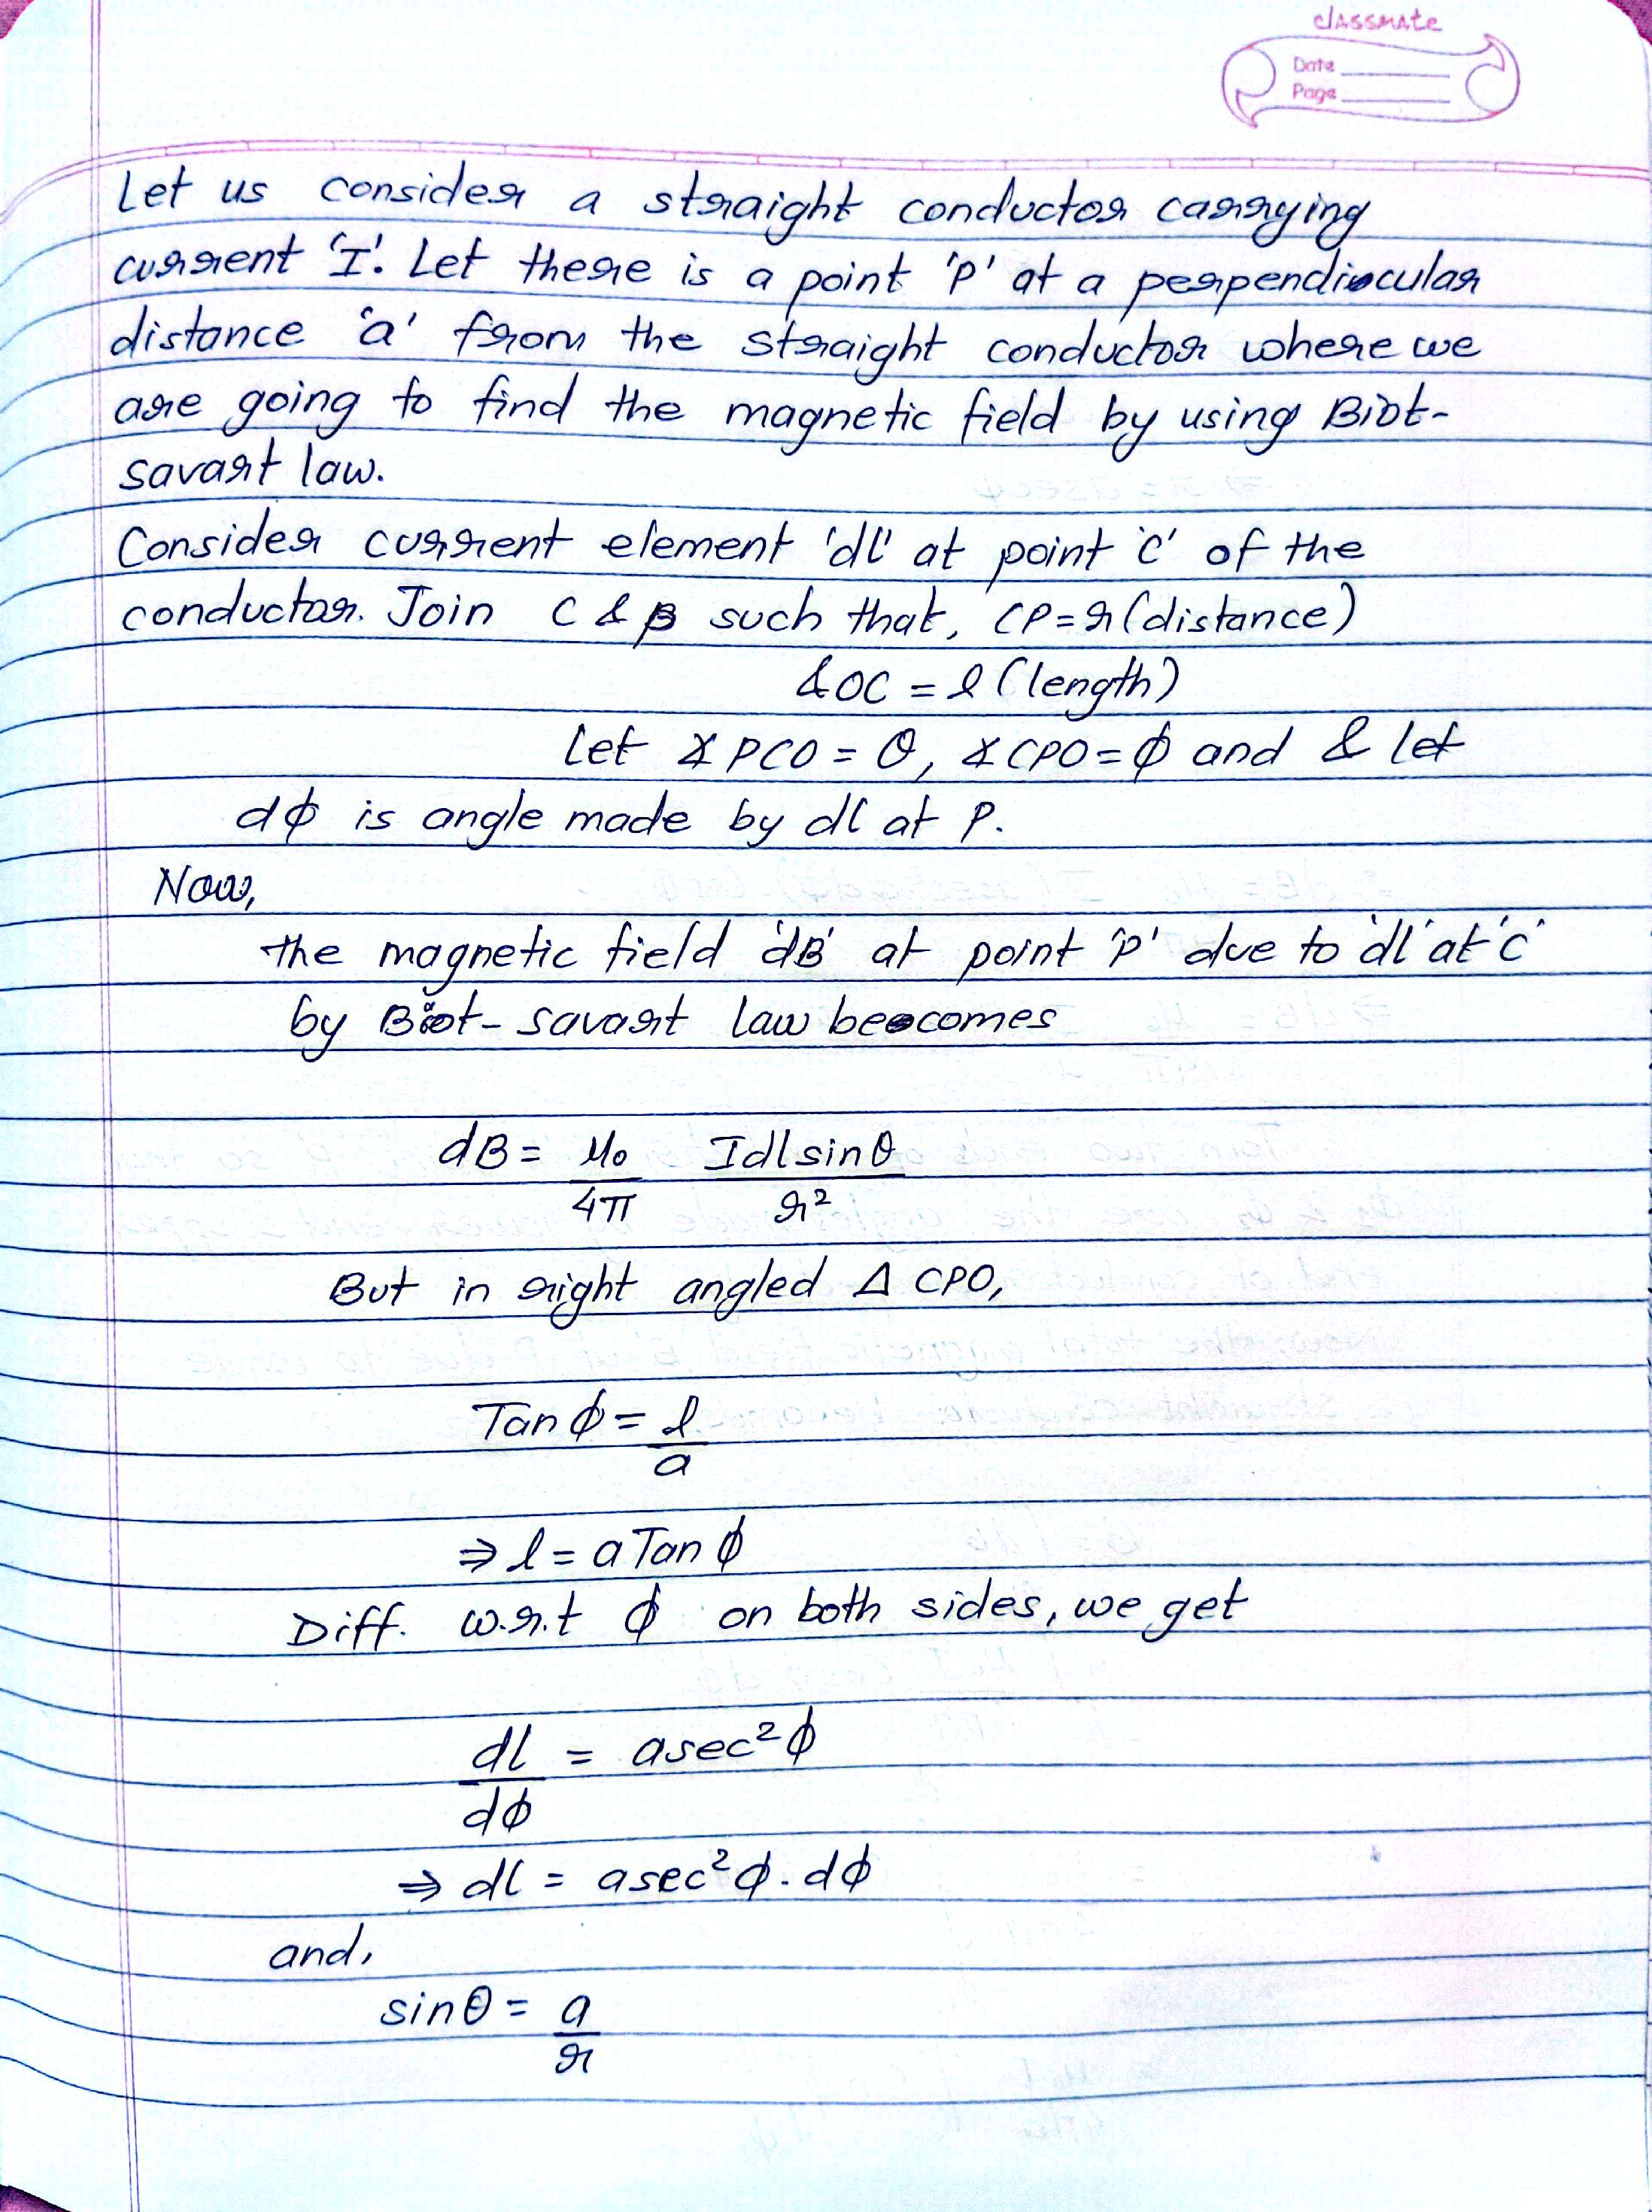 classmate
Date
Page
Let us consider a straight conductor carrying
current 'I'. Let there is a point 'P' at a perpendicular
distance 'a' from the straight conductor where we
are going to find the magnetic field by using Biot-
savart law.
Consider current element 'dl' at point 'C' of the
conductor. Join C & P such that, CP = r (distance)
& OC = l (length)
Let ∡PCO = θ, ∡CPO = ϕ and & let
dϕ is angle made by dl at P.
Now,
the magnetic field 'dB' at point 'P' due to 'dl' at 'C'
by Biot-savart law becomes
dB = μ₀/4π Idl sinθ/r²
But in right angled Δ CPO,
Tan ϕ = l/a
⇒ l = a Tan ϕ
Diff. w.r.t ϕ on both sides, we get
dl/dϕ = a sec²ϕ
⇒ dl = a sec²ϕ . dϕ
and,
sinθ = a/r